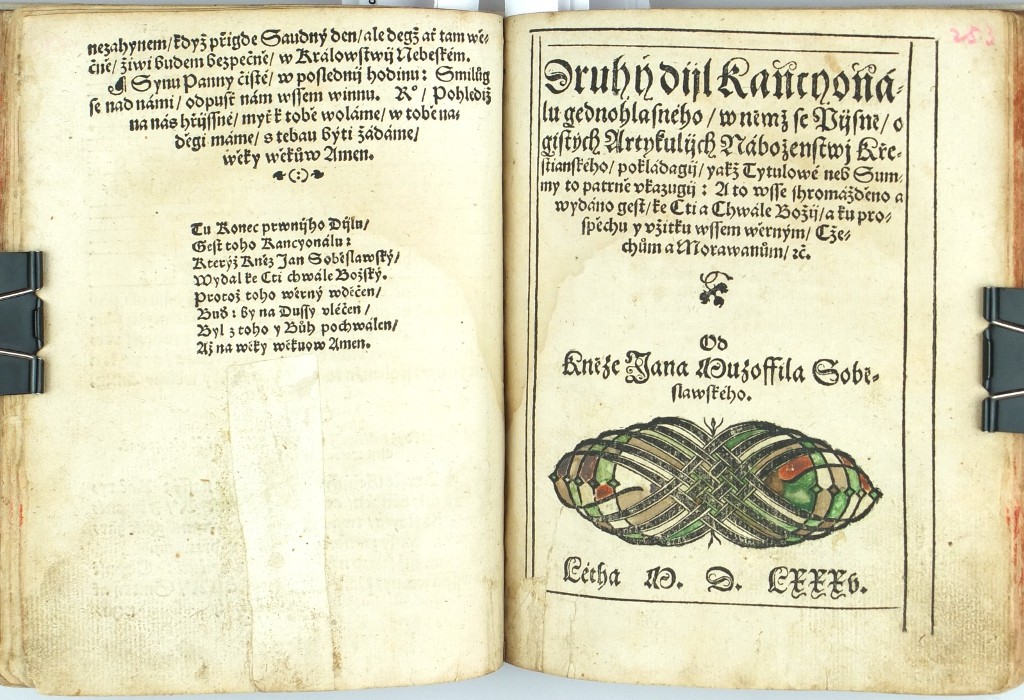 nezahynem/ když přigde Saudný den/ ale degž ať tam wě-
čně/ žiwi budem bezpečně/ w Králowstwij Nebeském.
¶ Synu Panny čisté/ w poslednij hodinu: Smilůg
se nad námi/ odpusť nám wssem winnu. R°/ Pohlediž
na nás hřijssné/ myť k tobě woláme/ w tobě na-
děgi máme/ s tebau býti žádáme/
wěky wěkůw Amen.
Tu Konec prwnijho Dijlu/
Gest toho Kancyonálu:
Kterýž Kněz Jan Soběslawský/
Wydal ke Cti chwále Božský.
Protož toho wěrný wděčen/
Buď: by na Dussy vléčen/
Byl z toho y Bůh pochwálen/
Až na wěky wěkuow Amen.
253
Druhý dijl Kancyoná-
lu gednohlasného/ w němž se Pijsně/ o
gistých Artykulijch Náboženstwj Kře-
stianského/ pokládagij/ yakž Tytulowé neb Sum-
my to patrně vkazugij: A to wsse shromážděno a
wydáno gest/ ke Cti a Chwále Božij/ a ku pro-
spěchu y vžitku wssem wěrným/ Cže-
chům a Morawanům/ ꝛč.
Od
Kněze Jana Muzoffila Sobě-
slawského.
Létha M. D. LXXXv.